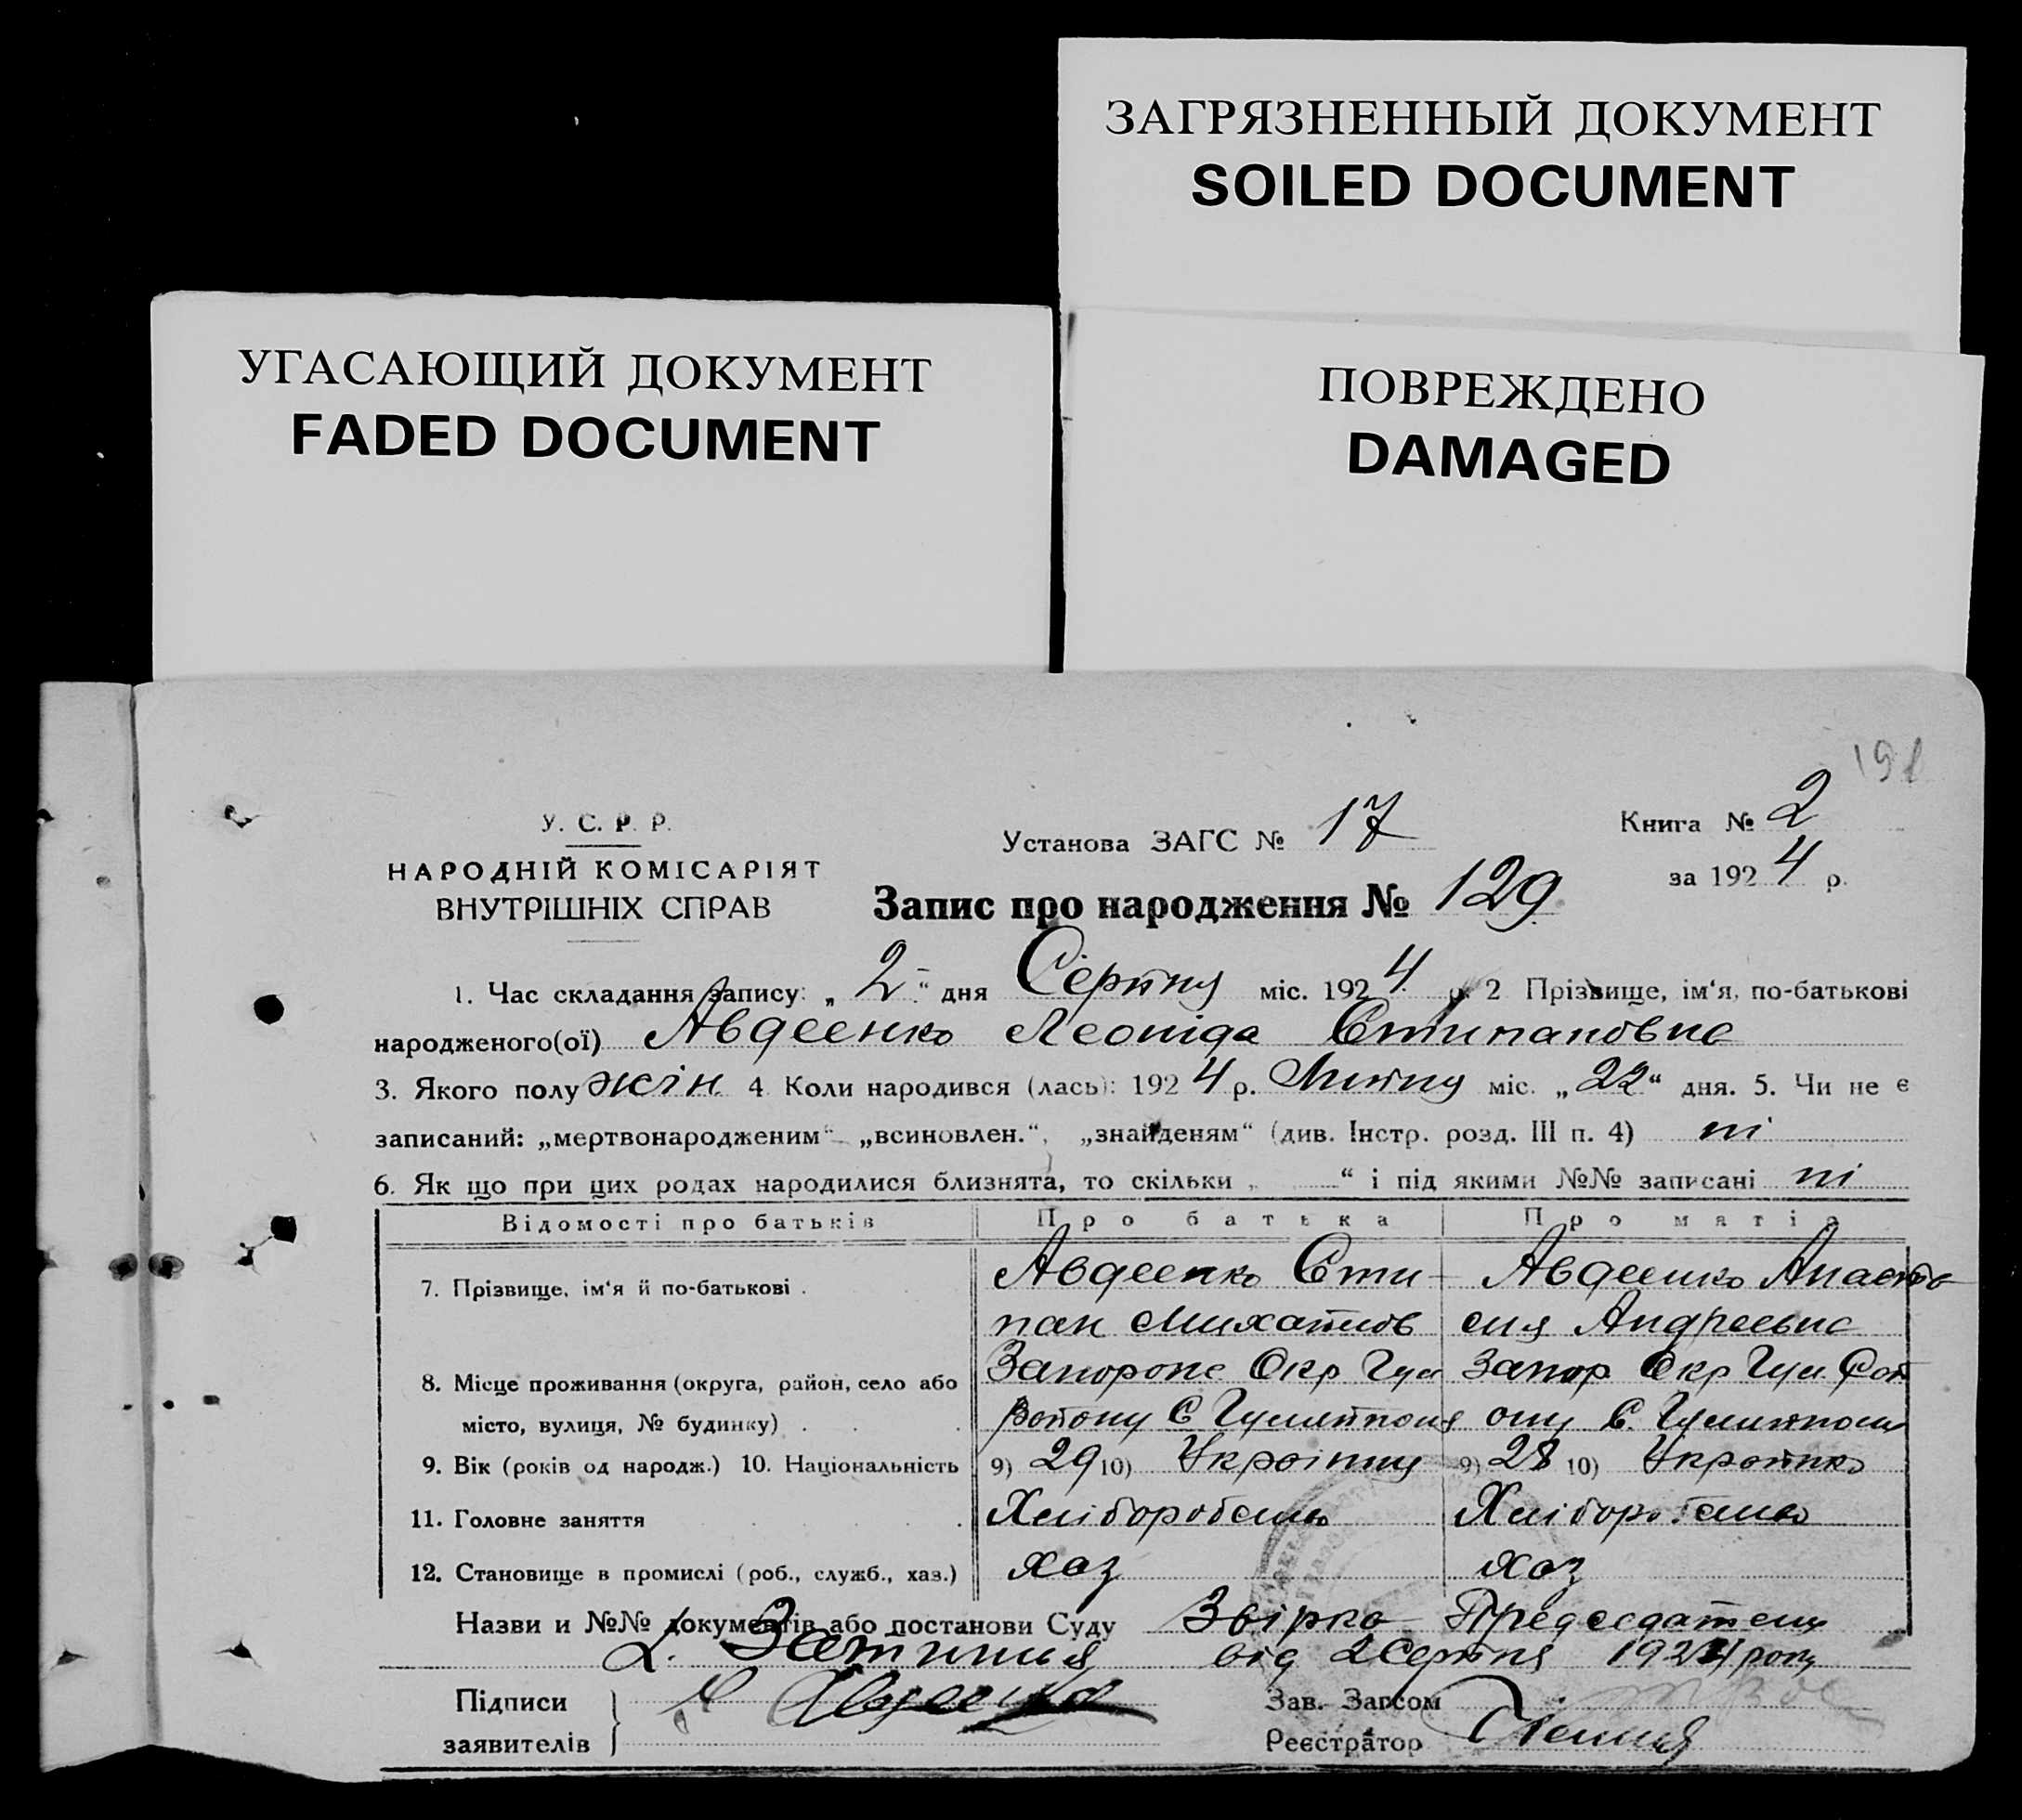 ЗАГРЯЗНЕННЫЙ ДОКУМЕНТ
SOILED DOCUMENT
УГАСАЮЩИЙ ДОКУМЕНТ
FADED DOCUMENT
ПОВРЕЖДЕНО
DAMAGED
191
У. С. Р. Р.
НАРОДНІЙ КОМІСАРІЯТ
ВНУТРІШНІХ СПРАВ
Установа ЗАГС № 17
Книга № 2
за 1924 р.
Запис про народження № 129
1. Час складання запису: „2" дня Серпня міс. 1924 р. 2 Прізвище, ім'я, по-батькові
народженого(ої) Авдеенко Леоніда Стипановна
3. Якого полу жін. 4 Коли народився (лась): 1924 р. Липня міс. „22" дня. 5. Чи не є
записаний: „мертвонародженим" „всиновлен.", „знайденям" (див. Інстр. розд. III п. 4) ні
6. Як що при цих родах народилися близнята, то скільки „ " і під якими №№ записані ні
Відомості про батьків Про батька Про матір
7. Прізвище, ім'я й по-батькові . Авдеенко Сти- Авдеенко Анаста
пан Михайлов сия Андреевна
8. Місце проживання (округа, район, село або Запорожс Окр Гул Запор Окр Гул Рай
місто, вулиця, № будинку) . . . Району С Гуляйполя ону С. Гуляйполя
9. Вік (років од народж.) 10. Національність 9) 29 10) Украінец 9) 28 10) Украінка
11. Головне заняття . . . Хліборобство Хліборобство
12. Становище в промислі (роб., служб., хаз.) хаз хаз
Назви и №№ документів або постанови Суду Звірка Председателя
Затишья від 2 Серпня 1924 року
Підписи Авдеенко Зав. Загсом
заявителів Реєстратор